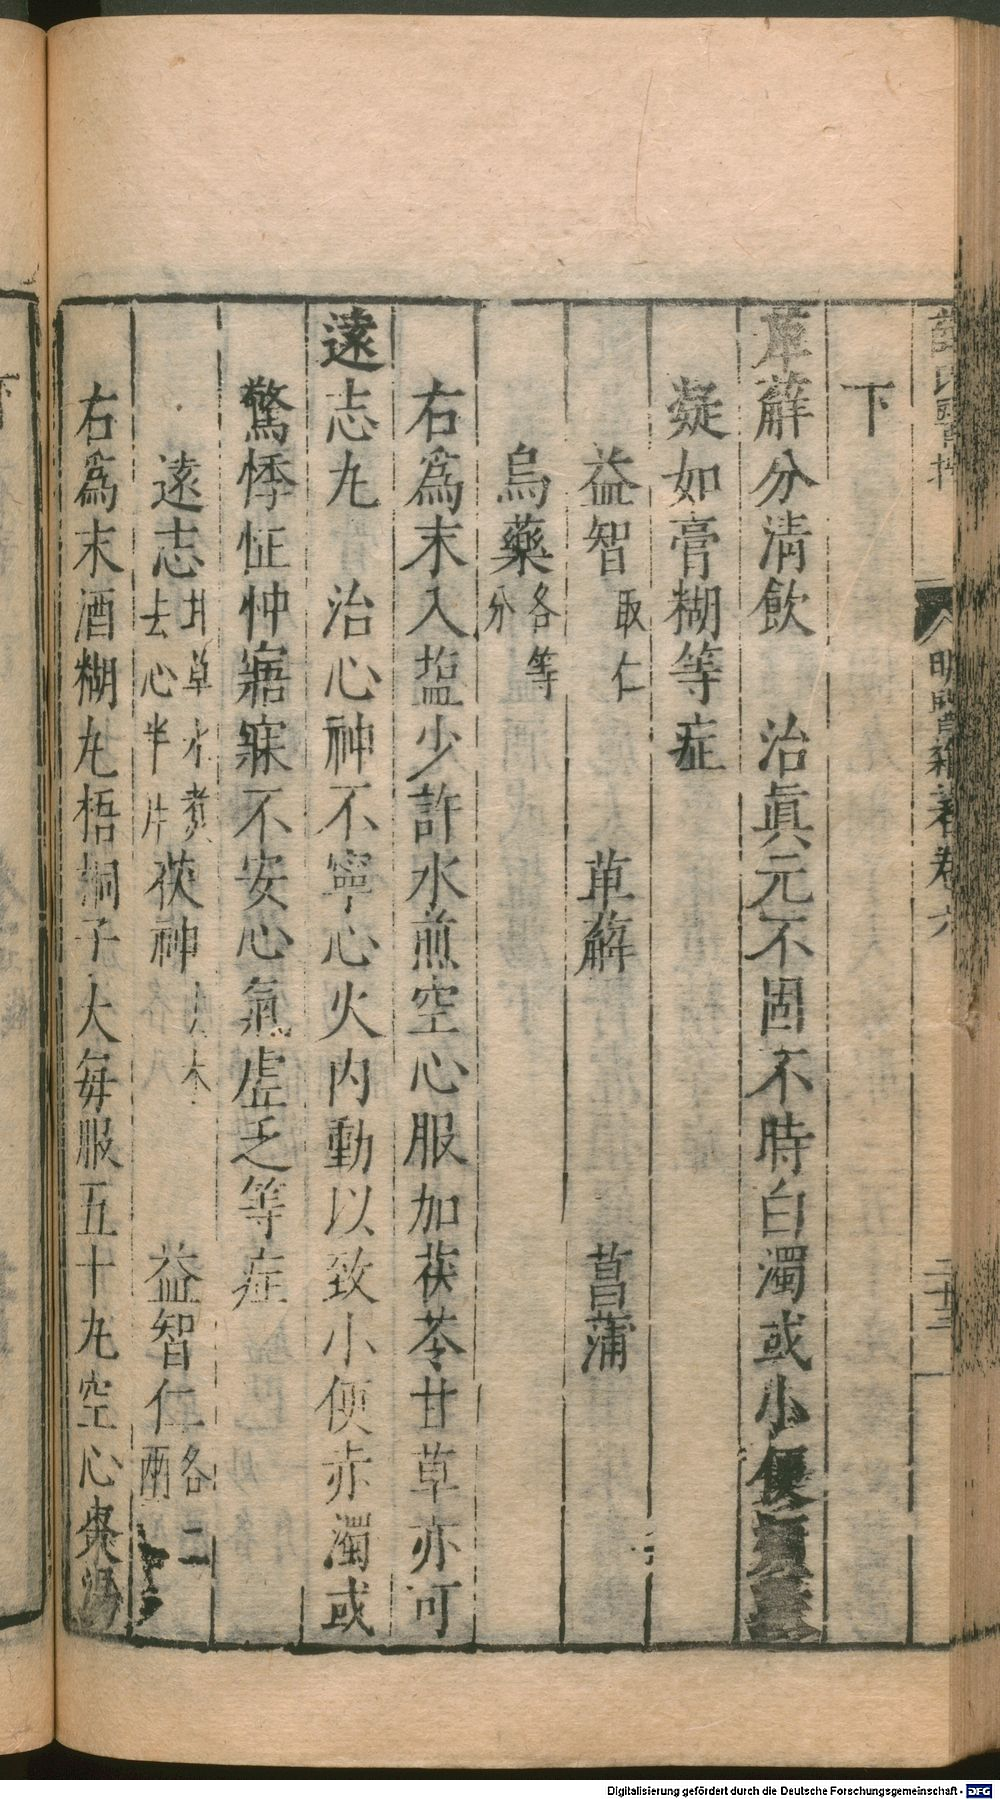 下
萆薢分清飲　治眞元不固不時白濁或小便頻數
凝如膏糊等症
益智取仁　萆薢　菖蒲
烏藥各等分
右爲末入塩少許水煎空心服加茯苓甘草亦可
遠志丸　治心神不寧心火内動以致小便赤濁或
驚悸怔忡寤寐不安心氣虛乏等症
遠志甘草水煮去心半斤茯神去木　益智仁各二兩
右爲末酒糊丸梧桐子大每服五十丸空心棗湯
下
明醫雜著卷六
二十三
Digitalisierung gefördert durch die Deutsche Forschungsgemeinschaft - DFG